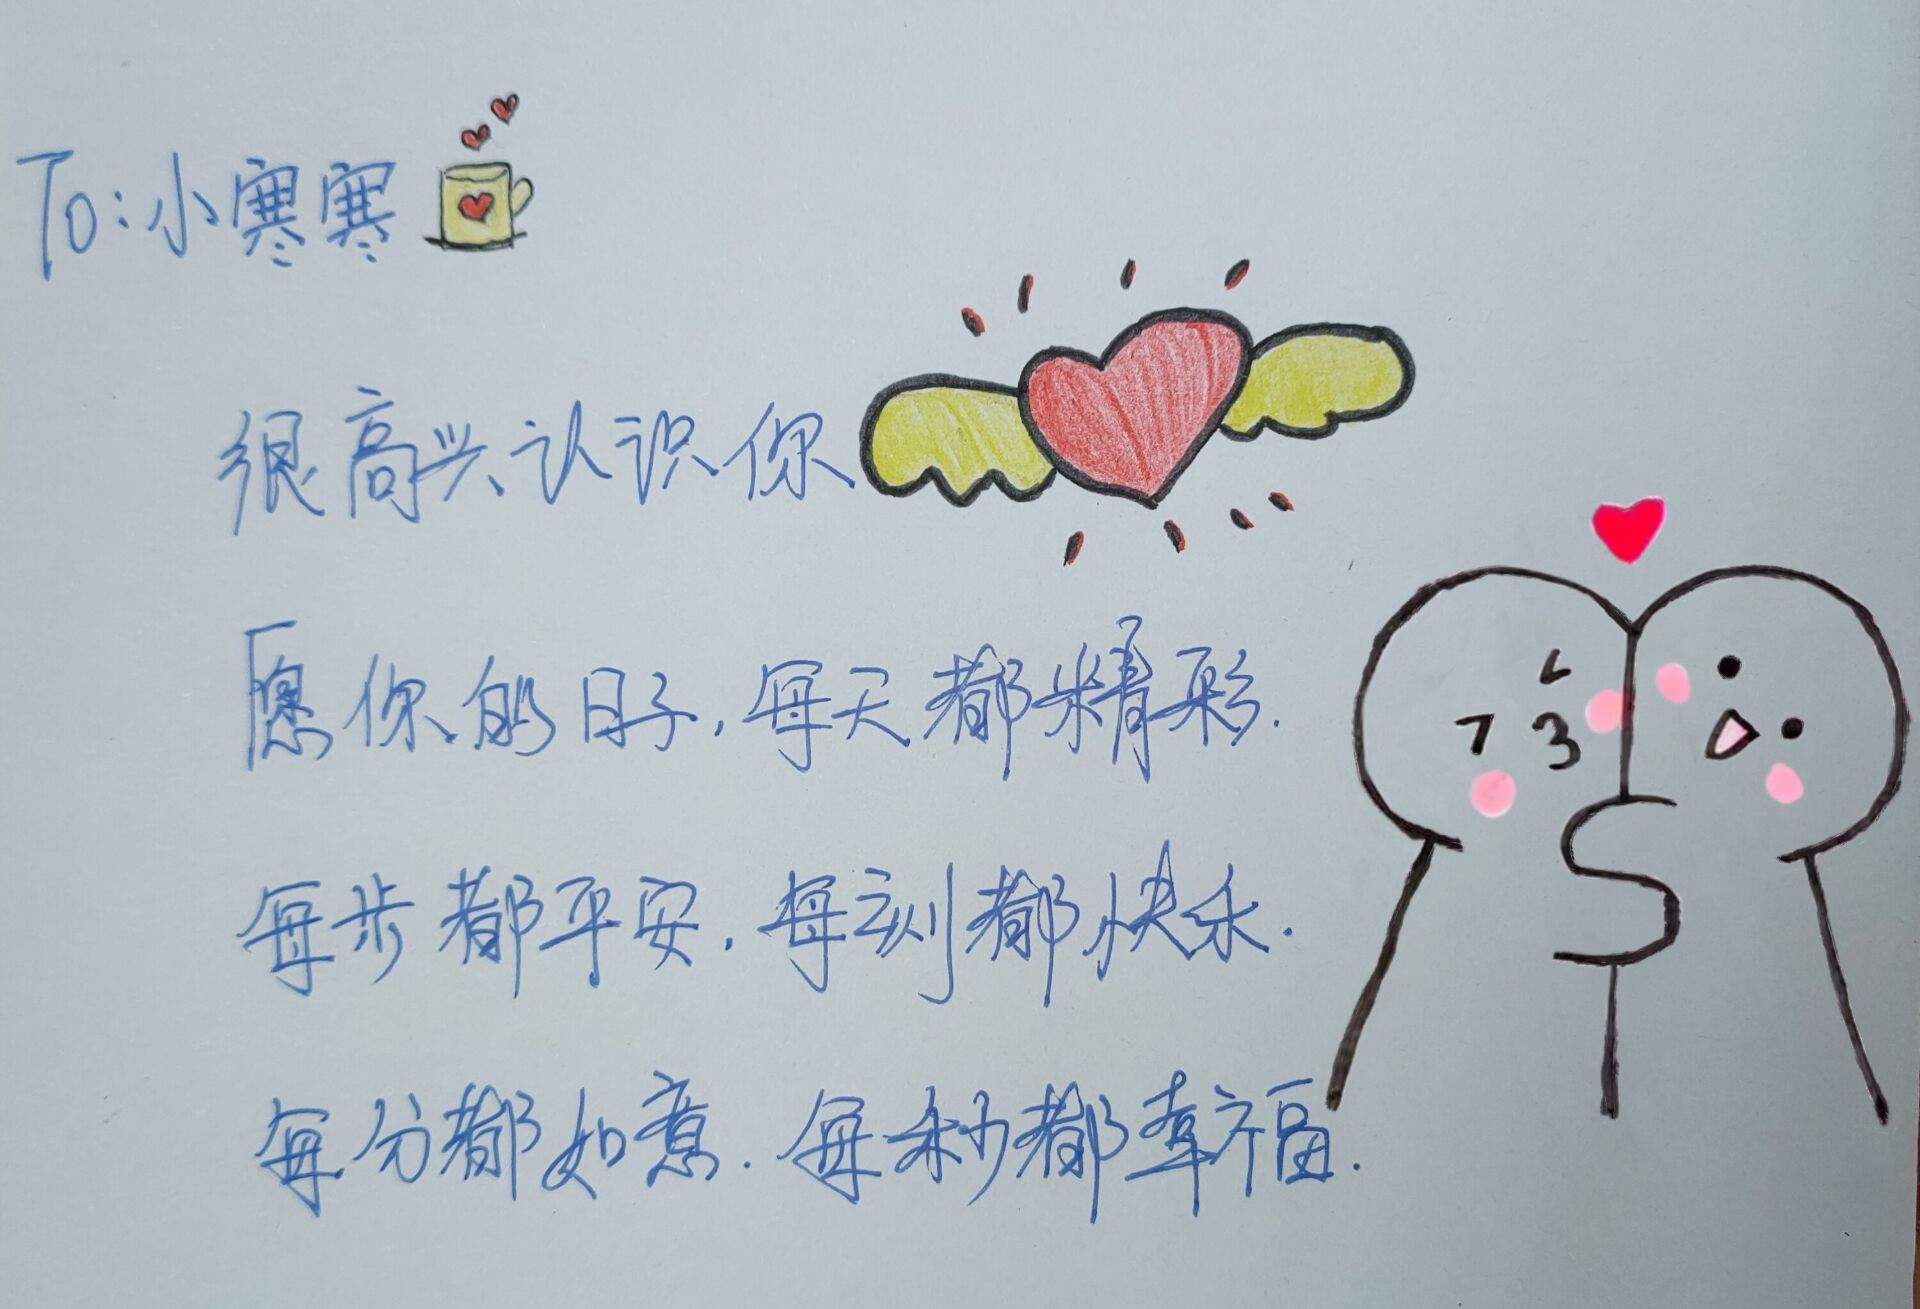 To:小寒寒
很高兴认识你
愿你的日子,每天都精彩.
每步都平安,每刻都快乐.
每分都如意.每秒都幸福.